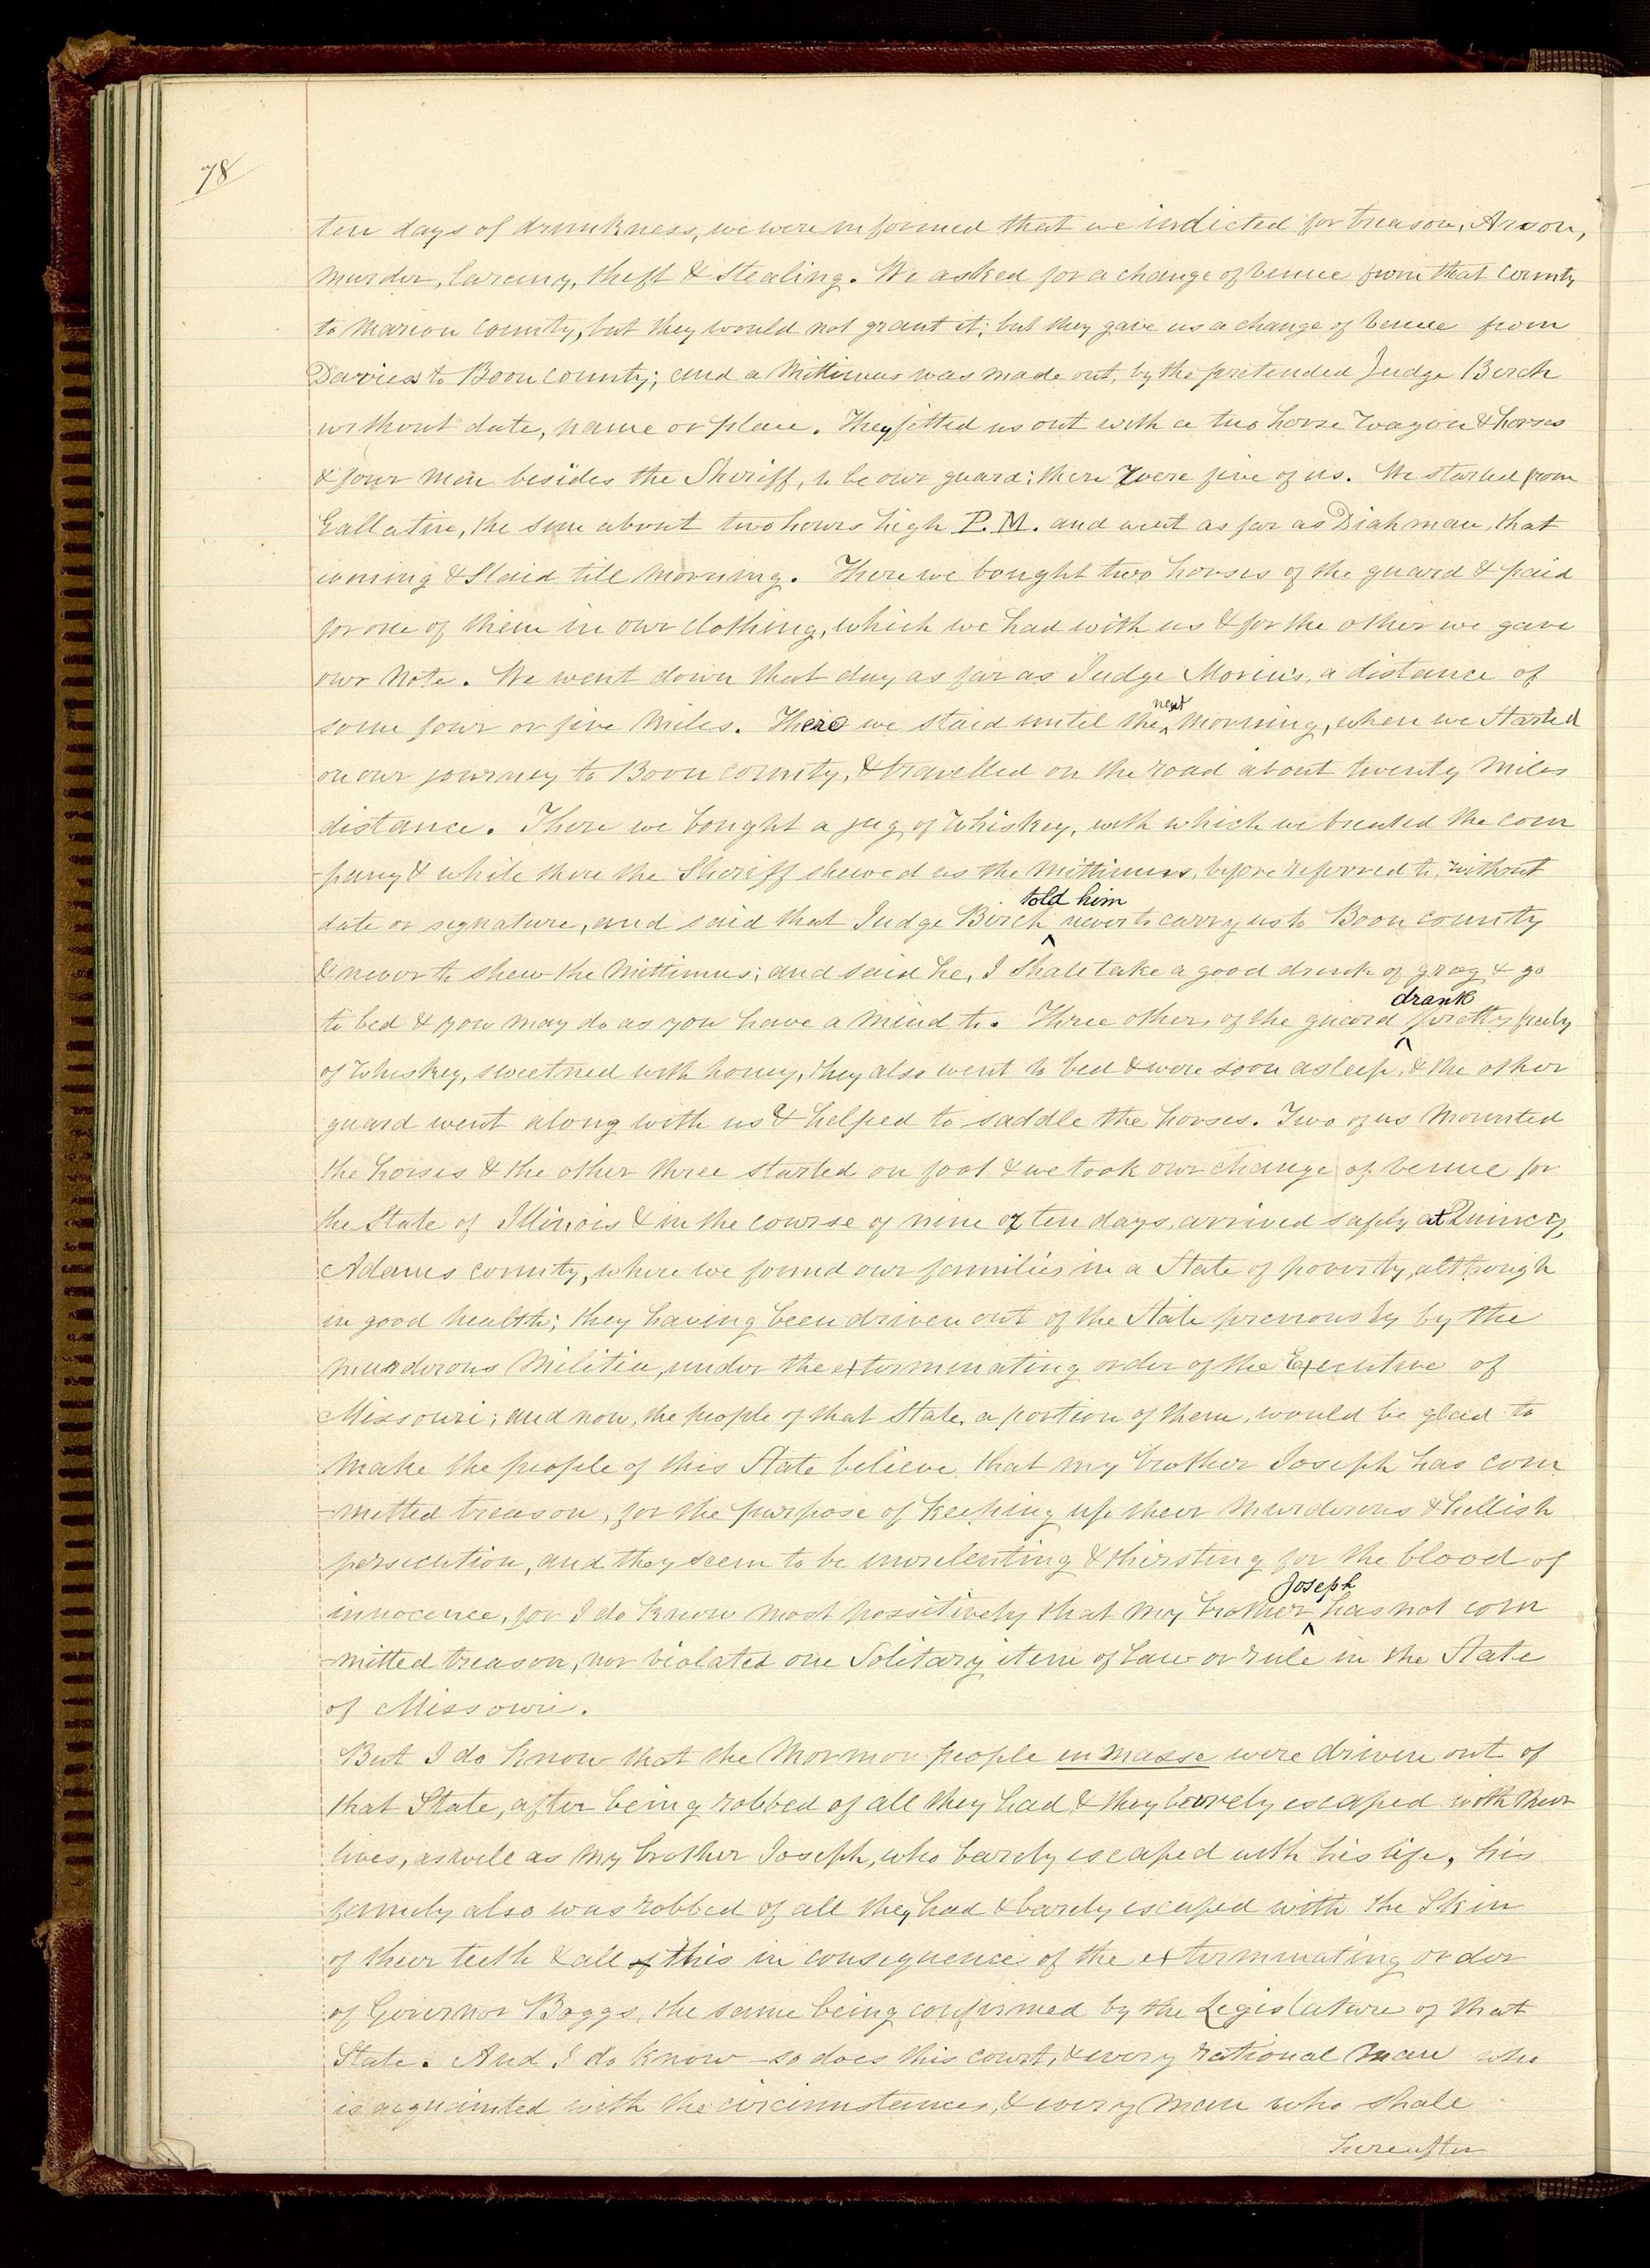 78
ten days of drunkness, we were informed that we indicted for treason, Arson,
murder, larceny, theft & Stealing. We asked for a change of venue from that county
to Marion county, but they would not grant it; but they gave us a change of venue from
Daviess to Boon county; and a Mittimus was made out, by the pretended Judge Birch
without date, name or place. They fitted us out with a two horse wagon & horses
& four men besides the Sheriff, to be our guard; there were five of us. We started from
Gallatine, the sun about two hours high P.M. and went as far as Diahman, that
evening & Staid till morning. There we bought two horses of the guard & paid
for one of them in our clothing, which we had with us & for the other we gave
our note. We went down that day as far as Judge Morin's, a distance of
some four or five miles. There we staid until the next morning, when we Started
on our journey to Boon county, & travelled on the road about twenty miles
distance. There we bought a jug of whiskey, with which we treated the com
-pany & while there the Sheriff shewed us the Mittimus, before referred to, without
date or signature, and said that Judge Birch told him never to carry us to Boon county
& never to shew the Mittimus; and said he, I shall take a good drink of grog & go
to bed & you may do as you have a mind to. Three others of the guard drank pretty freely
of whiskey, sweetned with honey, they also went to bed & were soon asleep, & the other
guard went along with us & helped to saddle the horses. Two of us mounted
the horses & the other three started on foot & we took our change of venue for
the State of Illinois & in the course of nine or ten days, arrived safely at Quincy,
Adams county, where we found our families in a State of poverty, although
in good health; they having been driven out of the State previously by the
murderous Militia, under the exterminating order of the Executive of
Missouri; and now, the people of that State, a portion of them, would be glad to
make the people of this State believe, that my brother Joseph has com
-mitted treason, for the purpose of keeping up their murderous & hellish
persecution, and they seem to be unrelenting & thirsting for the blood of
innocence, for I do know most possitively that my brother Joseph has not com
-mitted treason, nor violated one Solitary item of law or rule in the State
of Missouri.
But I do know that the Mormon people en masse were driven out of
that State, after being robbed of all they had & they barely escaped with their
lives, as well as my brother Joseph, who barely escaped with his life, his
family also was robbed of all they had & barely escaped with the Skin
of their teeth & all of this in consequence of the exterminating order
of Governor Boggs, the same being confirmed by the Legislature of that
State. And I do know—so does this court, & every rational man who
is acquainted with the circumstances, & every man who shall
hereafter